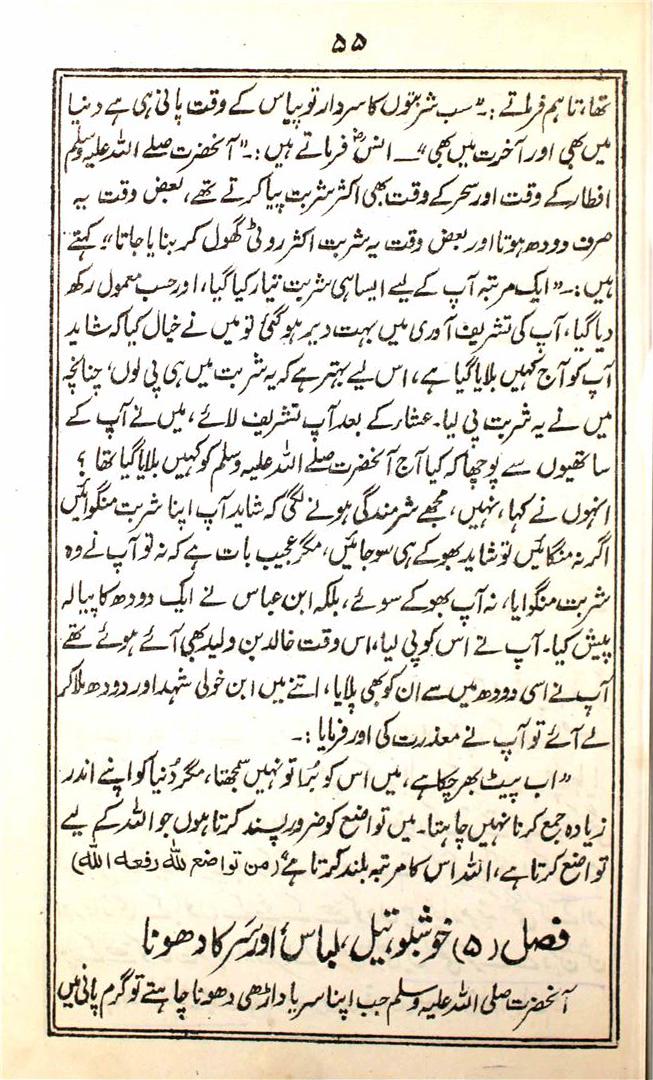 ۵۵
تھا، تاہم فرماتے :۔ "سب شربتوں کا سردار تو پیاس کے وقت پانی ہی ہے دنیا
میں بھی اور آخرت میں بھی"۔ انسؓ فرماتے ہیں :۔ "آنحضرت صلے اللہ علیہ وسلم
افطار کے وقت اور سحر کے وقت بھی اکثر شربت پیا کرتے تھے، بعض وقت یہ
صرف دودھ ہوتا اور بعض وقت یہ شربت اکثر روٹی گھول کر بنایا جاتا" کہتے
ہیں :۔ "ایک مرتبہ آپ کے لیے ایسا ہی شربت تیار کیا گیا، اور حسب معمول رکھ
دیا گیا، آپ کی تشریف آوری میں بہت دیر ہو گئی تو میں نے خیال کیا کہ شاید
آپ کو آج کہیں بلایا گیا ہے، اس لیے بہتر ہے کہ یہ شربت میں ہی پی لوں، چنانچہ
میں نے یہ شربت پی لیا۔ عشاء کے بعد آپ تشریف لائے، میں نے آپ کے
ساتھیوں سے پوچھا کہ کیا آج آنحضرت صلے اللہ علیہ وسلم کو کہیں بلایا گیا تھا ؟
انہوں نے کہا، نہیں، مجھے شرمندگی ہونے لگی کہ شاید آپ اپنا شربت منگوائیں
اگر نہ منگائیں تو شاید بھوکے ہی سو جائیں، مگر عجیب بات ہے کہ نہ تو آپ نے وہ
شربت منگوایا، نہ آپ بھوکے سوئے، بلکہ ابن عباس نے ایک دودھ کا پیالہ
پیش کیا۔ آپ نے اس کو پی لیا، اس وقت خالد بن ولید بھی آئے ہوئے تھے
آپ نے اسی دودھ میں سے ان کو بھی پلایا، اتنے میں ابن خولی شہد اور دودھ ملا کر
لے آئے تو آپ نے معذرت کی اور فرمایا :۔
"اب پیٹ بھر چکا ہے، میں اس کو بُرا تو نہیں سمجھتا، مگر دُنیا کو اپنے اندر
زیادہ جمع کرنا نہیں چاہتا۔ میں تواضع کو ضرور پسند کرتا ہوں جو اللہ کے لیے
تواضع کرتا ہے، اللہ اس کا مرتبہ بلند کرتا ہے" (من تواضع للہ رفعہ اللہ)
فصل (۵) خوشبو، تیل، لباس اور سَر کا دھونا
آنحضرت صلی اللہ علیہ وسلم جب اپنا سر یا داڑھی دھونا چاہتے تو گرم پانی میں